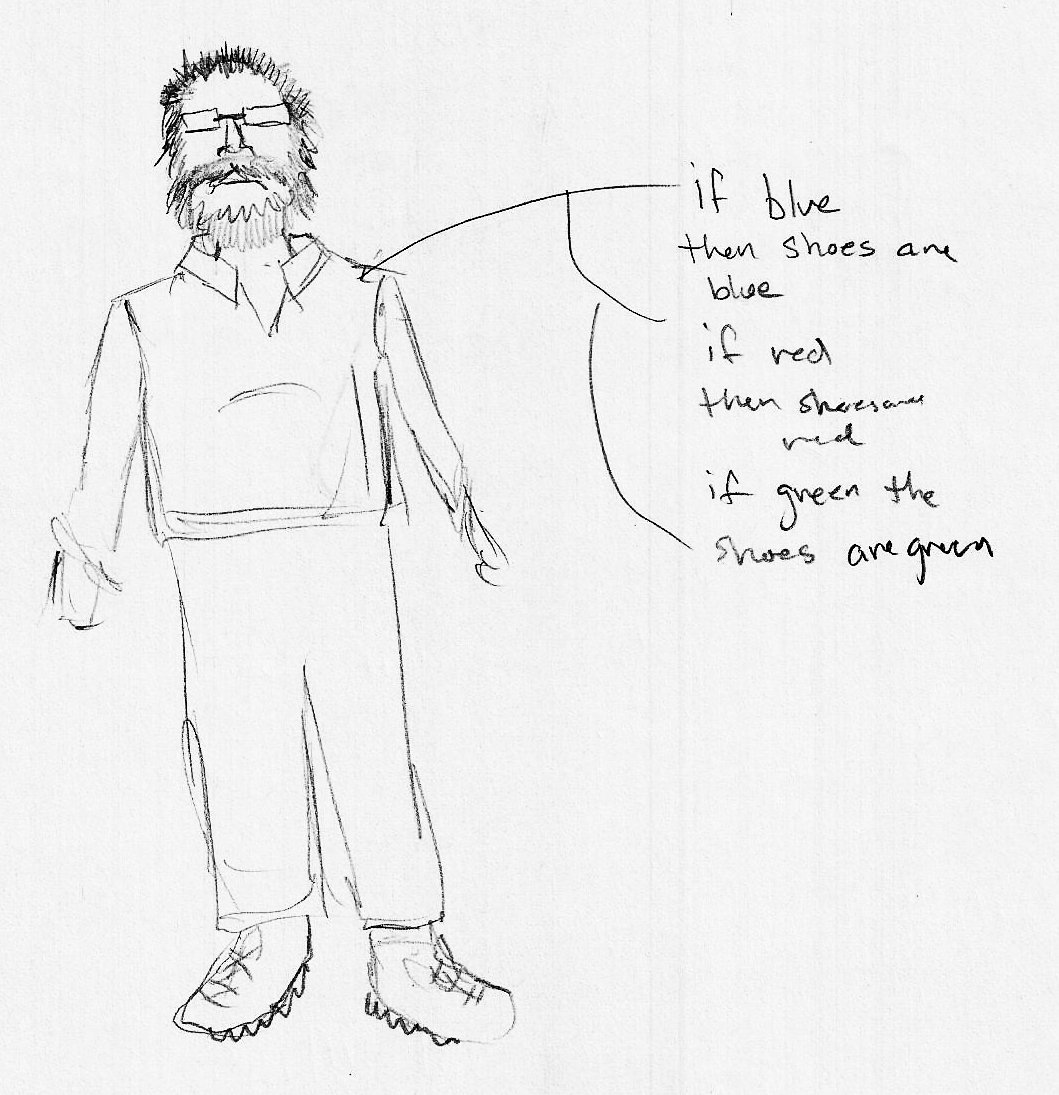 if blue
then shoes are
blue
if red
then shoes are
red
if green the
shoes are green